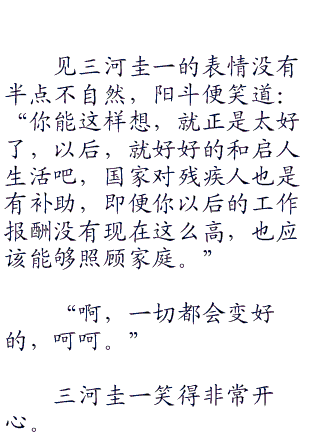 见三河圭一的表情没有
半点不自然，阳斗便笑道：
“你能这样想，就正是太好
了，以后，就好好的和启人
生活吧，国家对残疾人也是
有补助，即便你以后的工作
报酬没有现在这么高，也应
该能够照顾家庭。”
“啊，一切都会变好
的，呵呵。”
三河圭一笑得非常开
心。